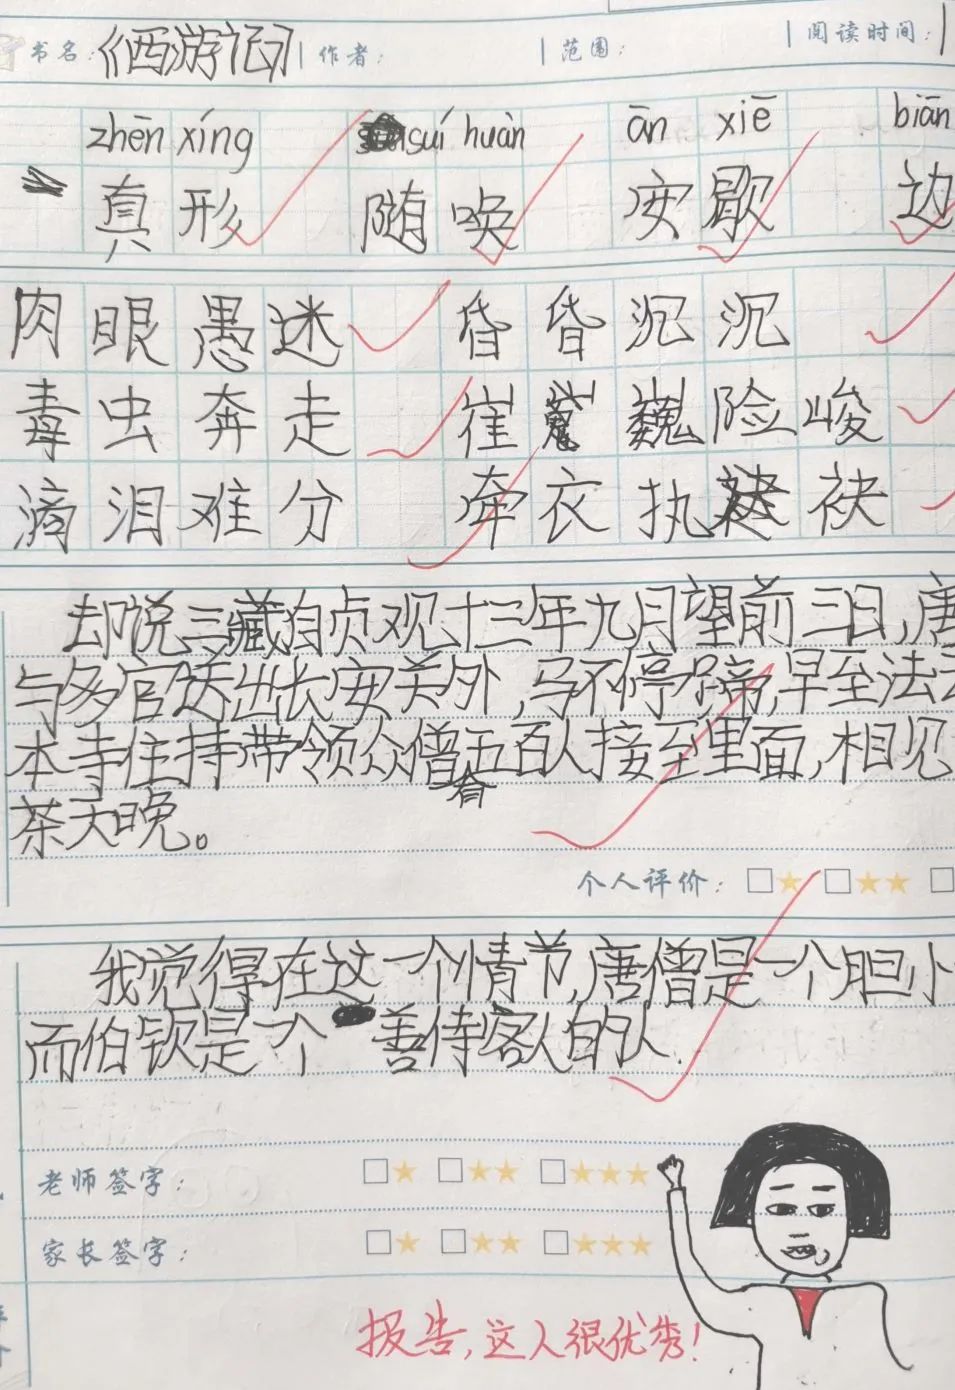 书名:《西游记》 作者: 范围: 阅读时间:
zhēn xíng suí huàn ān xiē biān
真形 随唤 安歇 边
肉眼愚迷 昏昏沉沉
毒虫奔走 崔巍险峻
滴泪难分 牵衣执袂
却说三藏自贞观十三年九月望前三日,唐
与多官送出长安关外,马不停蹄,早至法
本寺住持带领众僧有五百人接至里面,相见
茶天晚。
个人评价:
我觉得在这一个情节,唐僧是一个胆小
而伯钦是一个善侍客人的人.
老师签字:
家长签字:
报告,这人很优秀!